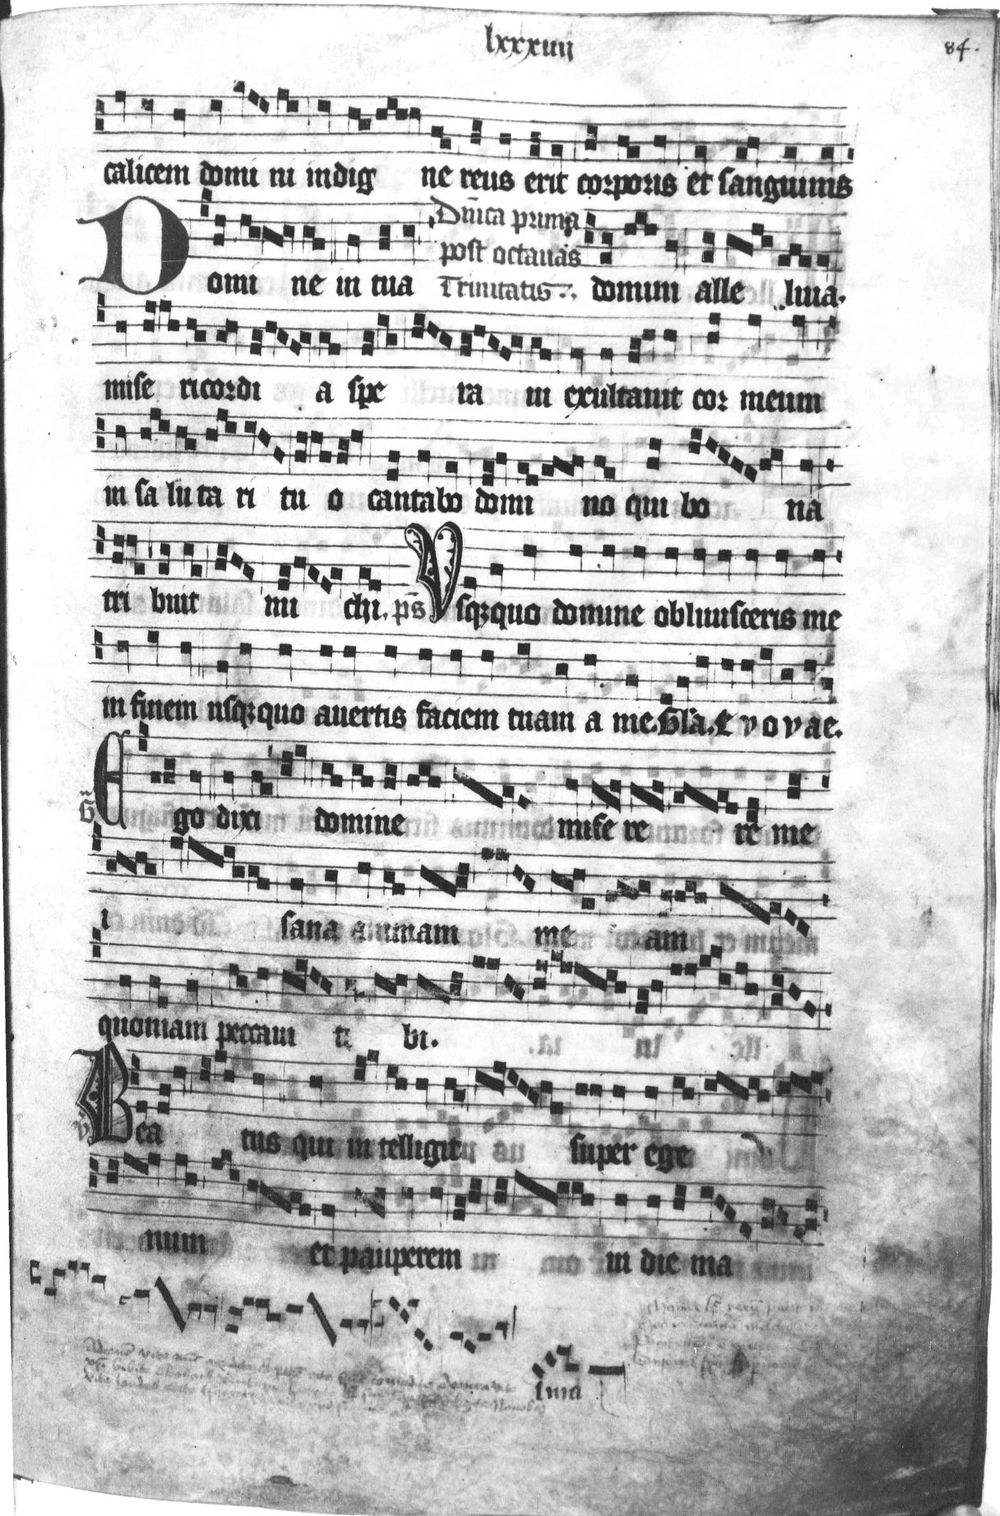 lxxxiiij
84.
calicem domi ni indig ne reus erit corporis et sanguinis
Dñica prima
post octauas
Trinitatis
Domi ne in tua domini alle luia.
mise ricordi a spe ra ui exultauit cor meum
in sa lu ta ri tu o cantabo domi no qui bo na
tri buit mi chi. p̄s Vsqꝫquo domine obliuisceris me
in finem usqꝫquo auertis faciem tuam a me. Gl̄a. E v o v a e.
Ego dixi domine mise re re me
i sana animam me am
quoniam peccaui ti bi.
Bea tus qui in telligit super ege
num et pauperem in die ma
luia